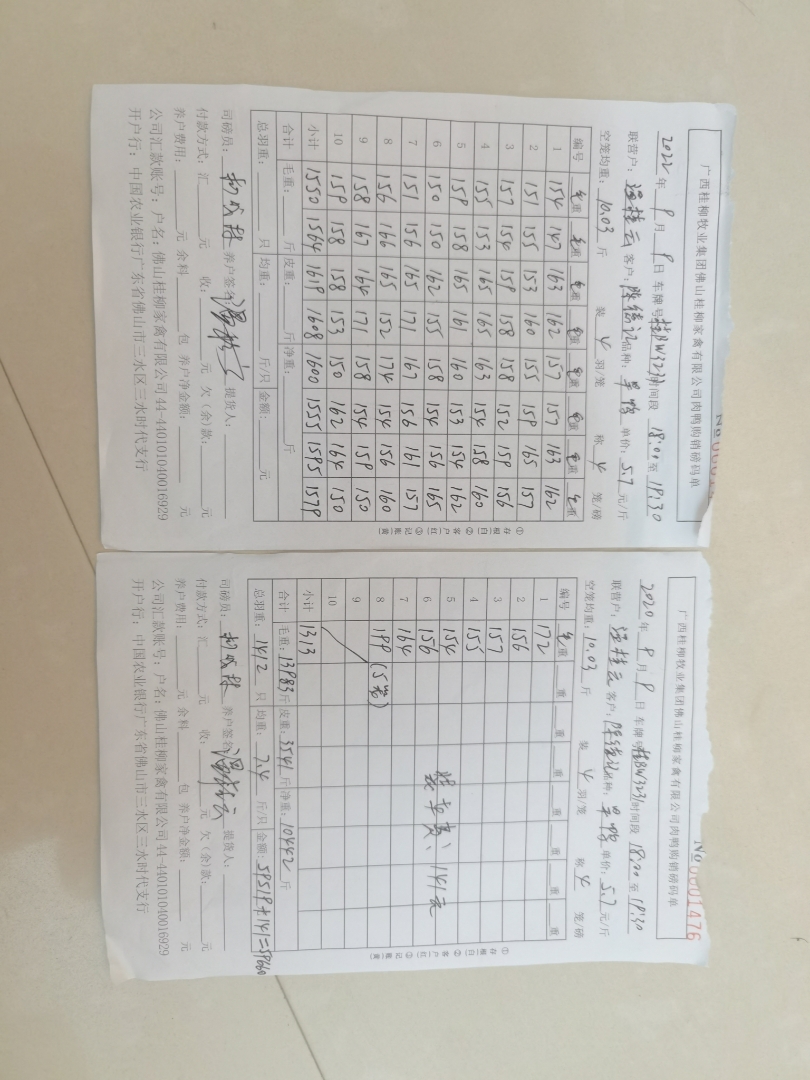 广西桂柳牧业集团佛山桂柳家禽有限公司肉鸭购销磅码单
2022年 9月 9日 车牌号 桂BW3231 时间段 18:00 至 19:30
联营户: 温桂云 客户: 陈德记 品种: 单价: 5.7 元/斤
空笼均重: 10.03 斤 装 4 羽/笼 称 4 笼/磅
编号 毛重 毛重 毛重 毛重 毛重 毛重 毛重
1 154 147 163 162 157 157 163 162
2 151 155 153 160 155 159 165 157
3 157 154 159 158 158 152 159 156
4 155 153 165 165 163 154 158 160
5 159 158 165 161 160 153 154 162
6 150 150 162 155 158 154 156 165
7 151 156 165 171 167 156 161 157
8 156 166 165 152 174 154 156 160
9 158 167 164 171 158 154 159 150
10 159 158 158 153 150 162 164 150
小计 1550 1564 1619 1608 1600 1555 1595 1579
合计 毛重: 斤 皮重: 斤 净重: 斤
总羽重: 只 均重: 斤/只 金额: 元
司磅员: 养户签名: 提货人:
付款方式: 汇 元 收: 元 欠(余)款: 元
养户费用: 元 余料 包 养户净金额: 元
公司汇款账号: 户名: 佛山桂柳家禽有限公司44-440101040016929
开户行: 中国农业银行广东省佛山市三水区三水时代支行
①存根(白) ②客户(红) ③记账(黄)
No 0001476
广西桂柳牧业集团佛山桂柳家禽有限公司肉鸭购销磅码单
2020年 9月 9日 车牌号 桂BW3231 时间段 18:00 至 19:30
联营户: 温桂云 客户: 陈德记 品种: 单价: 5.7 元/斤
空笼均重: 10.03 斤 装 4 羽/笼 称 4 笼/磅
编号 毛重 重 重 重 重 重 重
1 172
2 156
3 157
4 155
5 154
6 156
7 164
8 199 (5笼)
9
10
小计 1313
装车费: 141元
合计 毛重: 13983 斤 皮重: 3541 斤 净重: 10442 斤
总羽重: 1412 只 均重: 7.4 斤/只 金额: 59519+141=59660
司磅员: 养户签名: 提货人:
付款方式: 汇 元 收: 元 欠(余)款: 元
养户费用: 元 余料 包 养户净金额: 元
公司汇款账号: 户名: 佛山桂柳家禽有限公司44-440101040016929
开户行: 中国农业银行广东省佛山市三水区三水时代支行
①存根(白) ②客户(红) ③记账(黄)